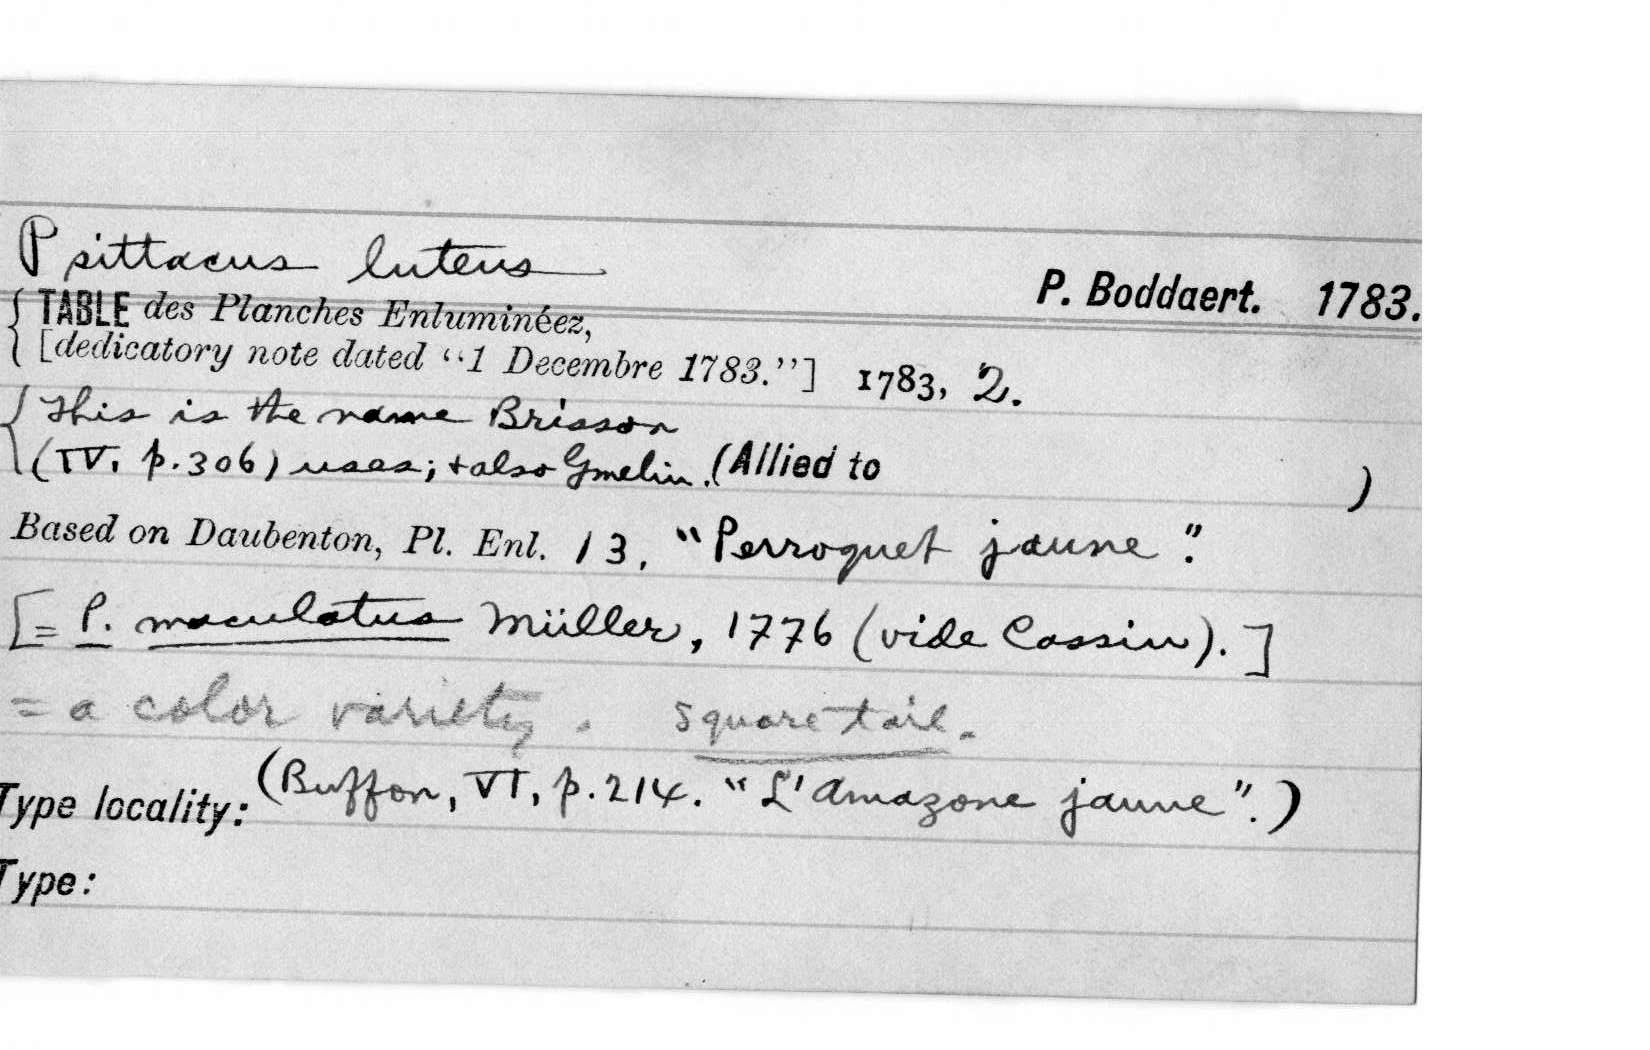 Psittacus luteus
P. Boddaert. 1783.
{ TABLE des Planches Enluminéez,
[dedicatory note dated “1 Decembre 1783.”] 1783, 2.
{ This is the name Brisson
(IV, p.306) uses; + also Gmelin. (Allied to )
Based on Daubenton, Pl. Enl. 13, “Perroquet jaune”.
[= P. maculatus Müller, 1776 (vide Cassin).]
= a color variety. Square tail.
Type locality: (Buffon, VI, p.214. “L'Amazone jaune”.)
Type: